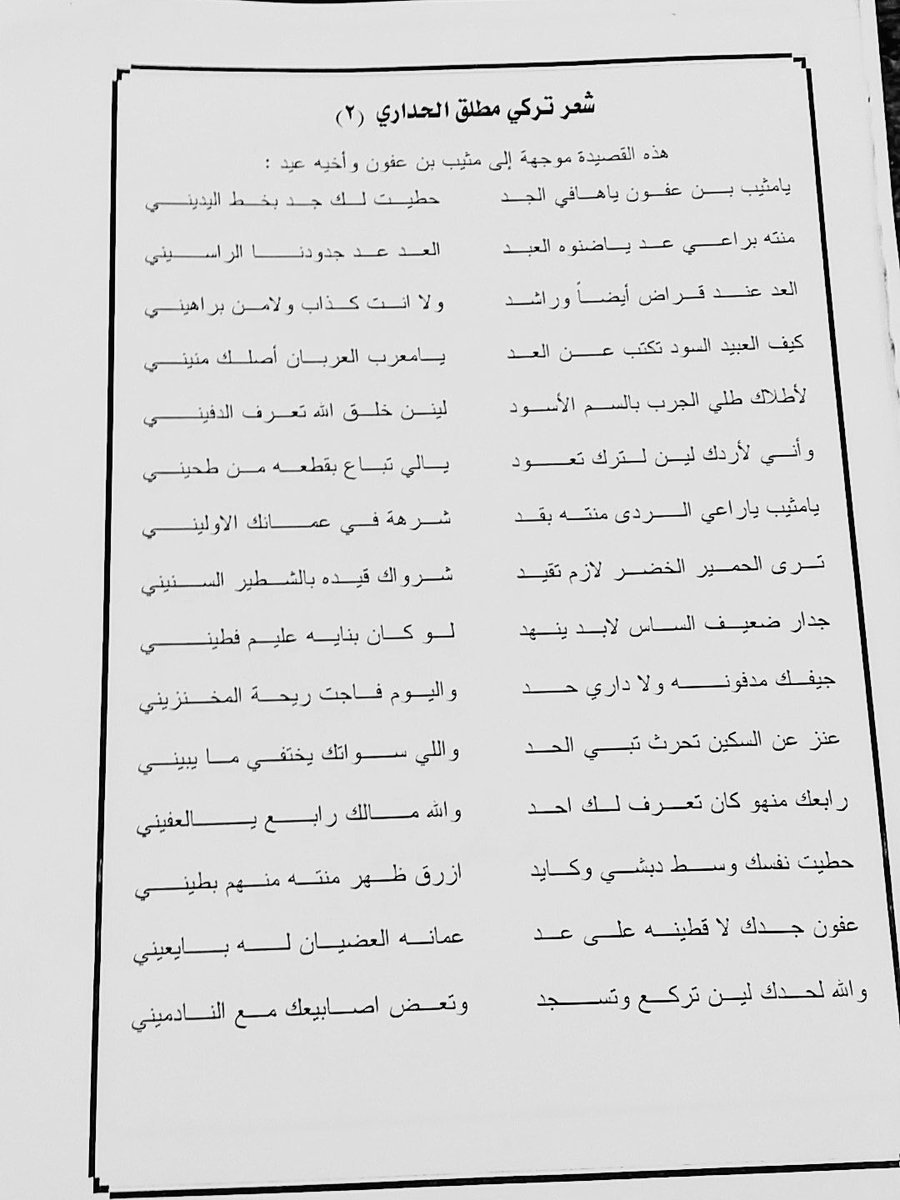 شعر تركي مطلق الحداري (٢)
هذه القصيدة موجهة إلى مثيب بن عفون وأخيه عيد :
يامثيب بن عفون ياهافي الجد حطيت لك جد بخط اليديني
منته براعي عد ياضنوه العبد العد عد جدودنا الراسيني
العد عند قراض أيضاً وراشد ولا انت كذاب ولامن براهيني
كيف العبيد السود تكتب عن العد يامعرب العربان أصلك منيني
لأطلاك طلي الجرب بالسم الأسود لينن خلق الله تعرف الدفيني
وأني لأردك لين لترك تعود يالي تباع بقطعه من طحيني
يامثيب ياراعي الردى منته بقد شرهة في عمانك الاوليني
ترى الحمير الخضر لازم تقيد شرواك قيده بالشطير السنيني
جدار ضعيف الساس لابد ينهد لو كان بنايه عليم فطيني
جيفك مدفونه ولا داري حد واليوم فاجت ريحة المخنزيني
عنز عن السكين تحرث تبي الحد واللي سواتك يختفي ما يبيني
رابعك منهو كان تعرف لك احد والله مالك رابع يالعفيني
حطيت نفسك وسط دبشي وكايد ازرق ظهر منته منهم بطيني
عفون جدك لا قطينه على عد عمانه العضيان له بايعيني
والله لحدك لين تركع وتسجد وتعض اصابيعك مع النادميني